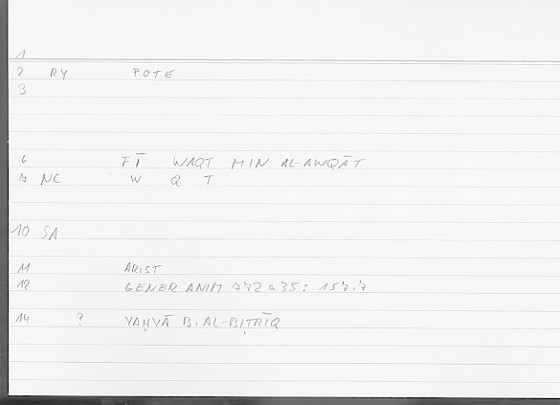 1
2 RY POTE
3
6 FĪ WAQT MIN AL-AWQĀT
7 NC W Q T
10 SA
11 ARIST
12 GENER ANIM 772a35: 157.7
14 ? YAḤYĀ B. AL-BIṬRĪQ